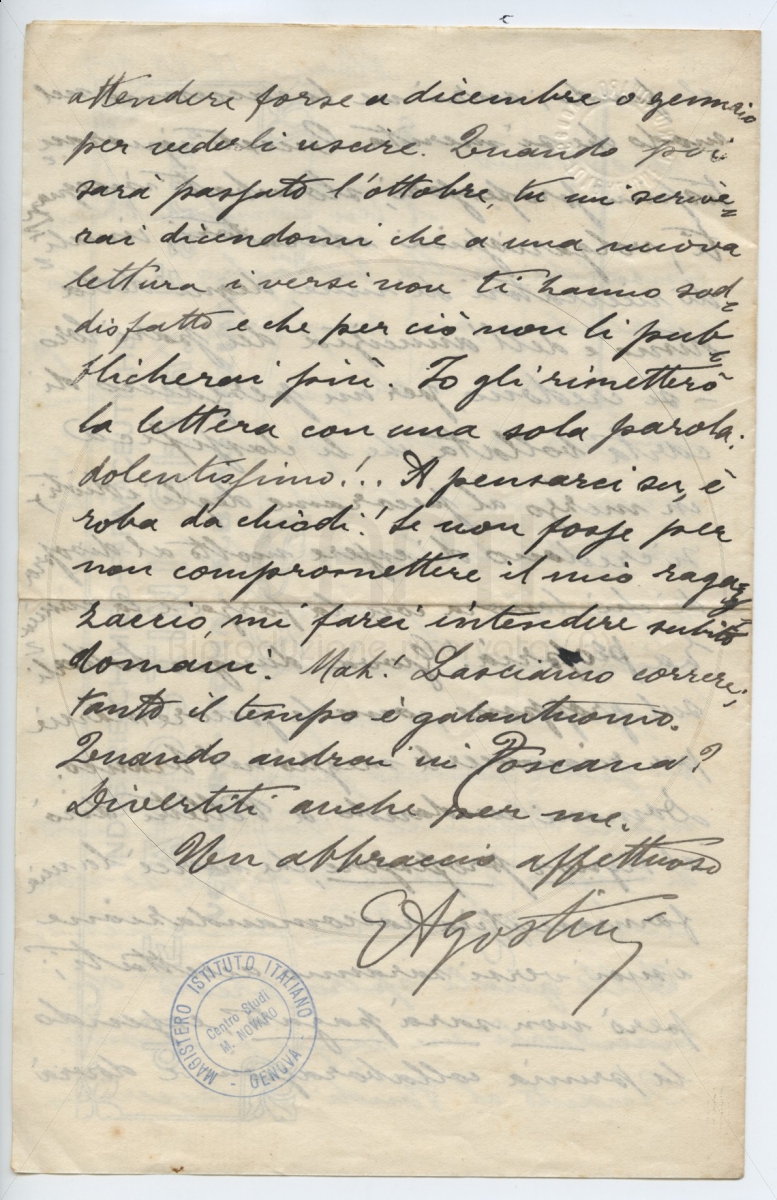 attendere forse a dicembre o gennaio
per vederli uscire. Quando poi
sarà passato l'ottobre, tu mi scrive=
rai dicendomi che a una nuova
lettura i versi non ti hanno sod=
disfatto e che per ciò non li pub=
blicherai più. Io gli rimetterò
la lettera con una sola parola:
dolentissimo!.. A pensarci su, è
roba da chiodi! Se non fosse per
non compromettere il mio ragaz=
zaccio, mi farei intendere subito
domani. Mah! Lasciamo correre;
tanto il tempo è galantuomo.
Quando andrai in Toscana?
Divertiti anche per me.
Un abbraccio affettuoso
EAgostini
MAGISTERO ISTITUTO ITALIANO
Centro Studi
M. NOVARO
- GENOVA -